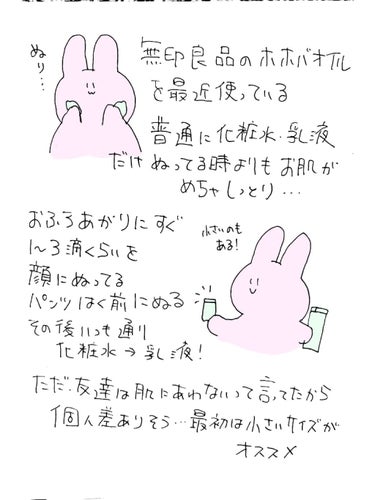 ぬり…
無印良品のホホバオイル
を最近使っている
普通に化粧水・乳液
だけぬってる時よりもお肌が
めちゃしっとり…
おふろあがりにすぐ
1〜3滴くらいを
顔にぬってる
パンツはく前にぬる
その後いつも通り
化粧水→乳液！
小さいのも
ある！
ただ友達は肌にあわないって言ってたから
個人差ありそう…最初は小さいサイズが
オススメ